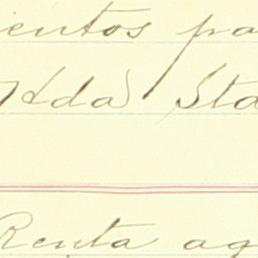 ientos pa
Hda Sta
Renta ag